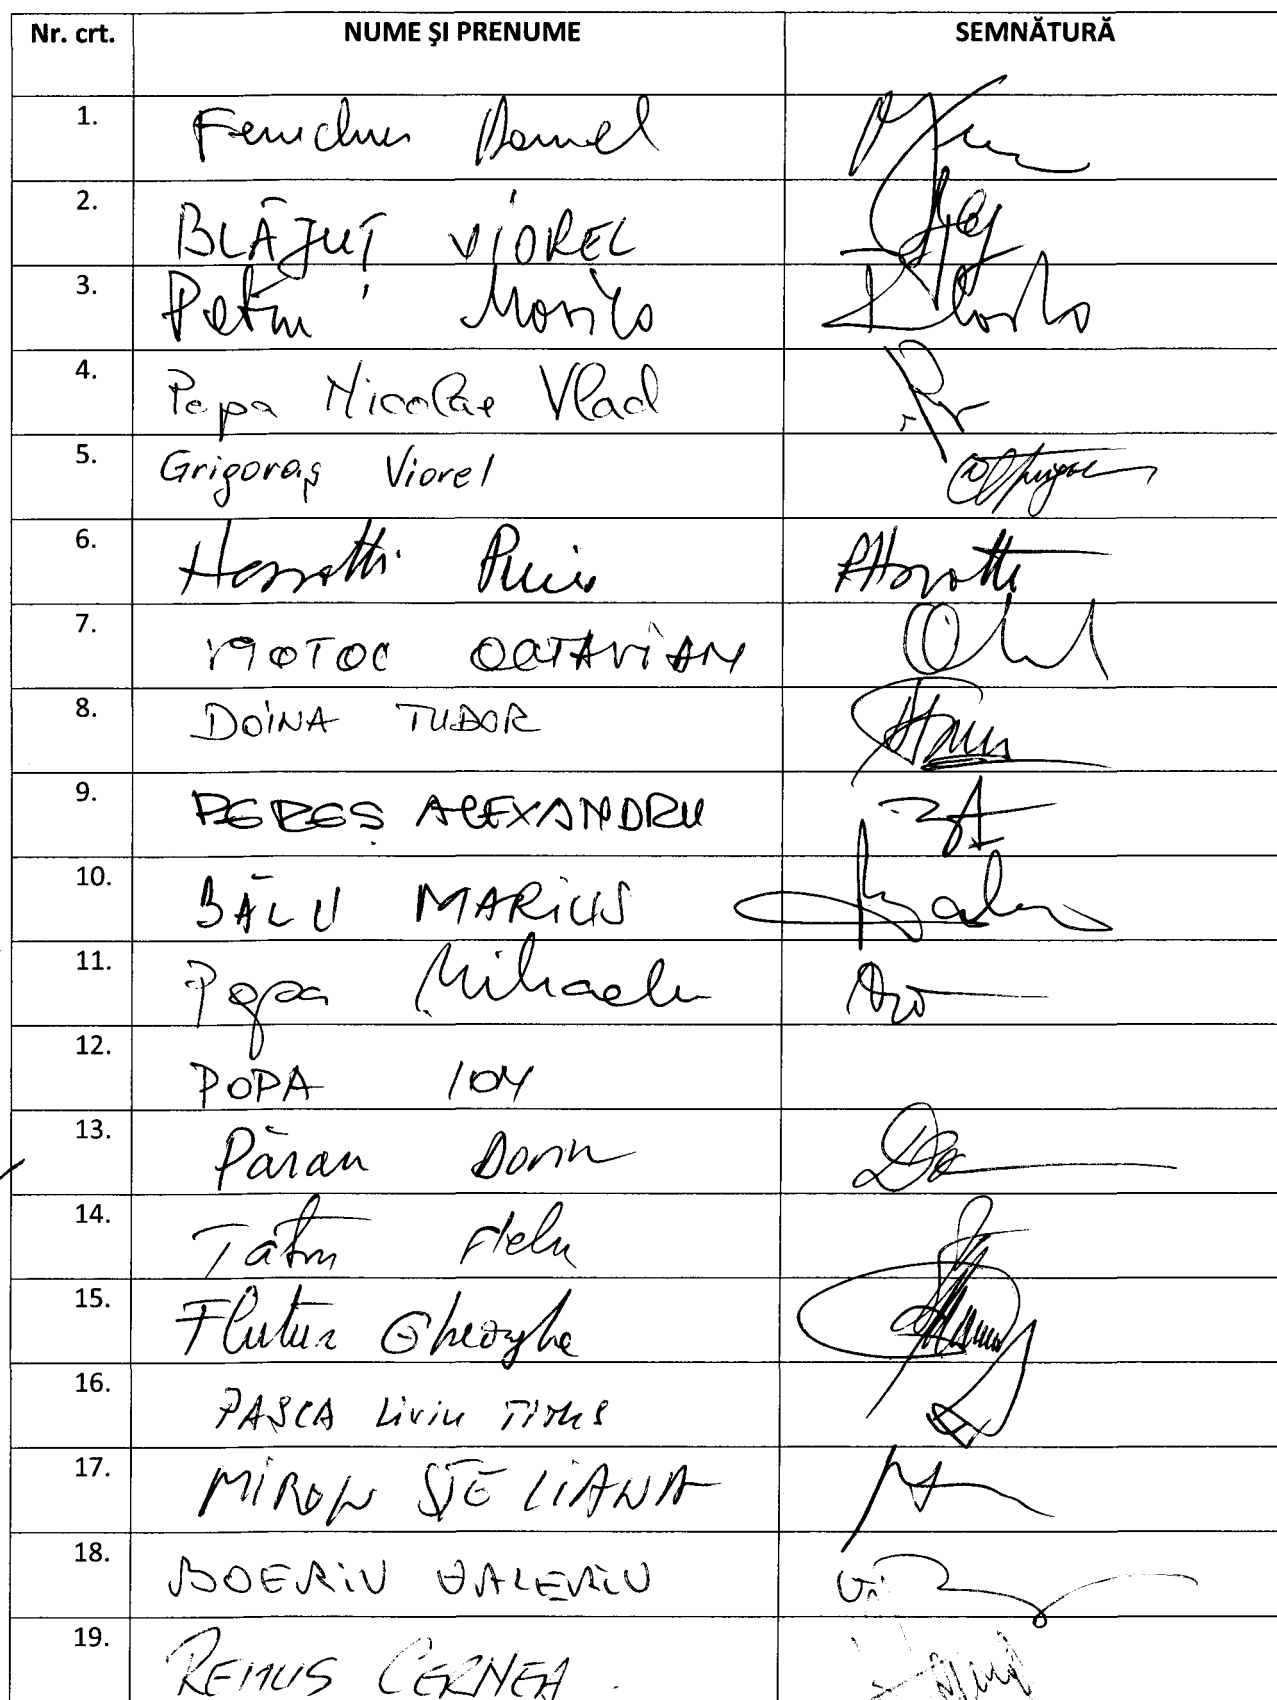 Nr. crt. NUME ŞI PRENUME SEMNĂTURĂ
1. Fenechiu Daniel
2. BLĂJUŢ VIOREL
3. Petru Movilă
4. Popa Nicolae Vlad
5. Grigoraş Viorel
6. Haşotti Puiu
7. MOTOC OCTAVIAN
8. DOINA TUDOR
9. PEREŞ ALEXANDRU
10. BĂLU MARIUS
11. Popa Mihaela
12. POPA ION
13. Păran Dorin
14. Tătru
15. Flutur Gheorghe
16. PAŞCA Liviu TITUS
17. MIRON ŞTELIANA
18. BOERIU VALERIU
19. REMUS CERNEA